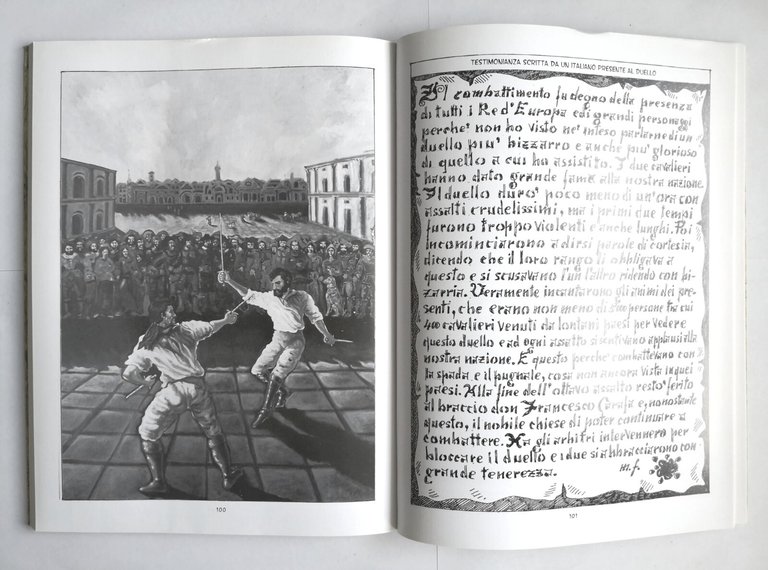 100
TESTIMONIANZA SCRITTA DA UN ITALIANO PRESENTE AL DUELLO
Il combattimento fu degno della presenza
di tutti i Re d'Europa e di grandi personaggi
perche' non ho visto ne' inteso parlarne di un
duello piu' bizzarro e anche piu' glorioso
di quello a cui ho assistito. I due cavalieri
hanno dato grande fama alla nostra nazione.
Il duello duro' poco meno di un'ora con
assalti crudelissimi, ma i primi due tempi
furono troppo violenti e anche lunghi. Poi
incominciarono a dirsi parole di cortesia,
dicendo che il loro rango li obbligava a
questo e si scusavano l'un l'altro ridendo con biz-
zarria. Veramente incantarono gli animi dei pre-
senti, che erano non meno di persone tra cui
400 cavalieri venuti da lontani paesi per vedere
questo duello e ad ogni assalto si sentivano applausi alla
nostra nazione. E questo perche' combattevano con
la spada e il pugnale, cosa non ancora vista in quei
paesi. Alla fine dell'ottavo assalto resto' ferito
al braccio don Francesco Carafa e, nonostante
questo, il nobile chiese di poter continuare a
combattere. Ma gli arbitri intervennero per
bloccare il duello e i due si abbracciarono con
grande tenerezza. m.f.
101